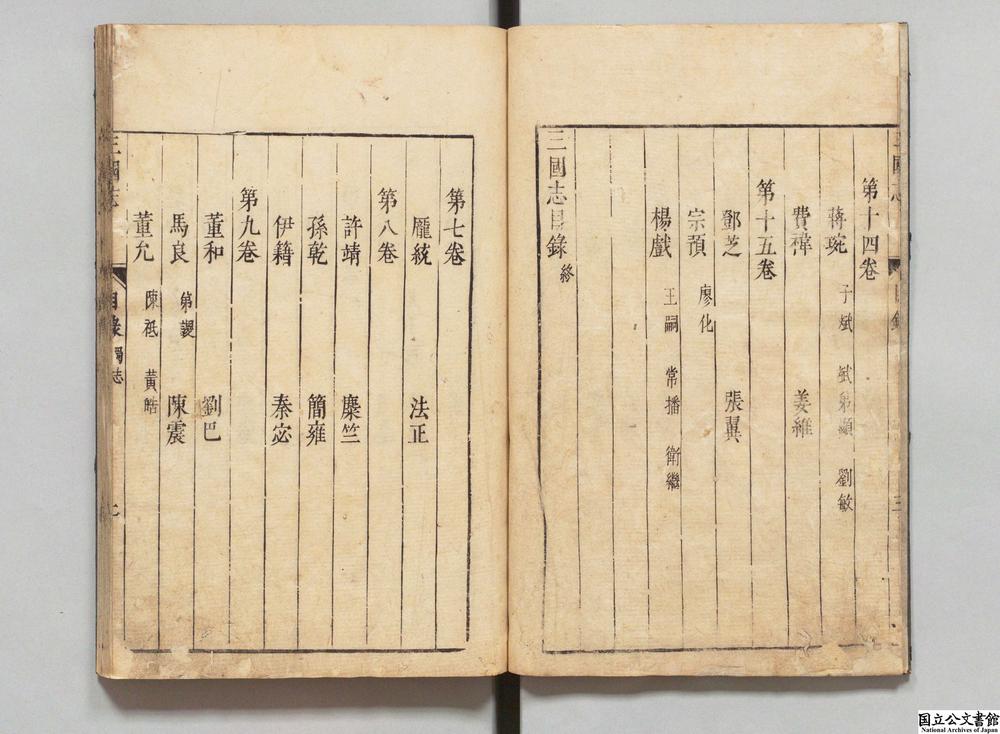 三國志
目錄
三
第十四卷
蔣琬 子斌 斌弟顯 劉敏
費禕 姜維
第十五卷
鄧芝 張翼
宗預 廖化
楊戲 王嗣 常播 衛繼
三國志目錄 終
第七卷
龐統 法正
第八卷
許靖 麋竺
孫乾 簡雍
伊籍 秦宓
第九卷
董和 劉巴
馬良 弟謖 陳震
董允 陳祗 黃皓
三國志
目錄 蜀志
国立公文書館
National Archives of Japan